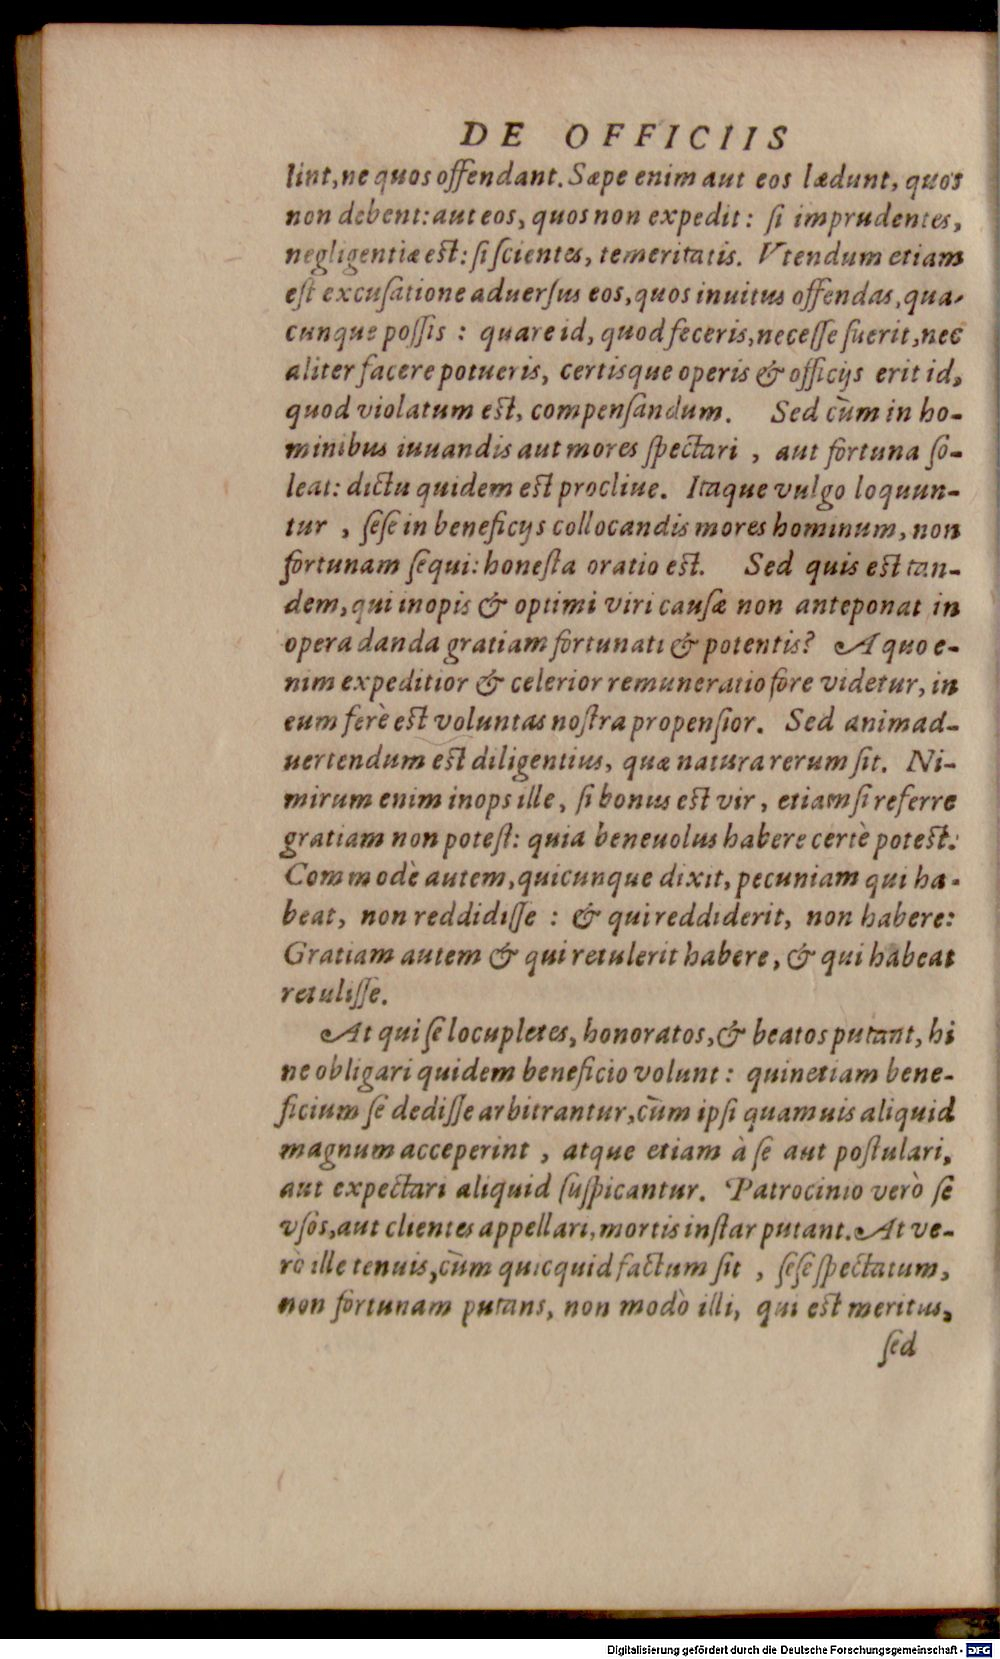 DE OFFICIIS
lint, ne quos offendant. Sæpe enim aut eos lædunt, quos
non debent: aut eos, quos non expedit: si imprudentes,
negligentiæ est: si scientes, temeritatis. Vtendum etiam
est excusatione aduersus eos, quos inuitus offendas, qua-
cunque possis : quare id, quod feceris, necesse fuerit, nec
aliter facere potueris, certisque operis & officijs erit id,
quod violatum est, compensandum. Sed cùm in ho-
minibus iuuandis aut mores spectari , aut fortuna so-
leat: dictu quidem est procliue. Itaque vulgo loquun-
tur , sese in beneficijs collocandis mores hominum, non
fortunam sequi: honesta oratio est. Sed quis est tan-
dem, qui inopis & optimi viri causæ non anteponat in
opera danda gratiam fortunati & potentis? A quo e-
nim expeditior & celerior remuneratio fore videtur, in
eum ferè est voluntas nostra propensior. Sed animad-
uertendum est diligentius, quæ natura rerum sit. Ni-
mirum enim inops ille, si bonus est vir, etiam si referre
gratiam non potest: quia beneuolus habere certè potest.
Commodè autem, quicunque dixit, pecuniam qui ha-
beat, non reddidisse : & qui reddiderit, non habere:
Gratiam autem & qui retulerit habere, & qui habeat
retulisse.
At qui se locupletes, honoratos, & beatos putant, hi
ne obligari quidem beneficio volunt: quinetiam bene-
ficium se dedisse arbitrantur, cùm ipsi quamuis aliquid
magnum acceperint , atque etiam à se aut postulari,
aut expectari aliquid suspicantur. Patrocinio verò se
vsos, aut clientes appellari, mortis instar putant. At ve-
rò ille tenuis, cùm quicquid factum sit , sese spectatum,
non fortunam putans, non modò illi, qui est meritus,
sed
Digitalisierung gefördert durch die Deutsche Forschungsgemeinschaft - DFG